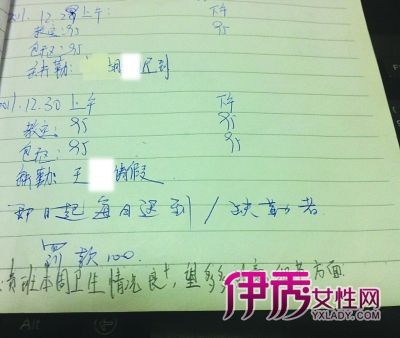 2011.12.29 上午:    下午
教室:95    95
包区:95
缺勤:胡 迟到
2011.12.30 上午    下午
教室:95    95
包区:95    95
缺勤:王 请假
即日起每日迟到/缺勤者
罚款100.
贵班本周卫生情况良+,望多 方面
伊秀女性网
YXLADY.COM
Alt